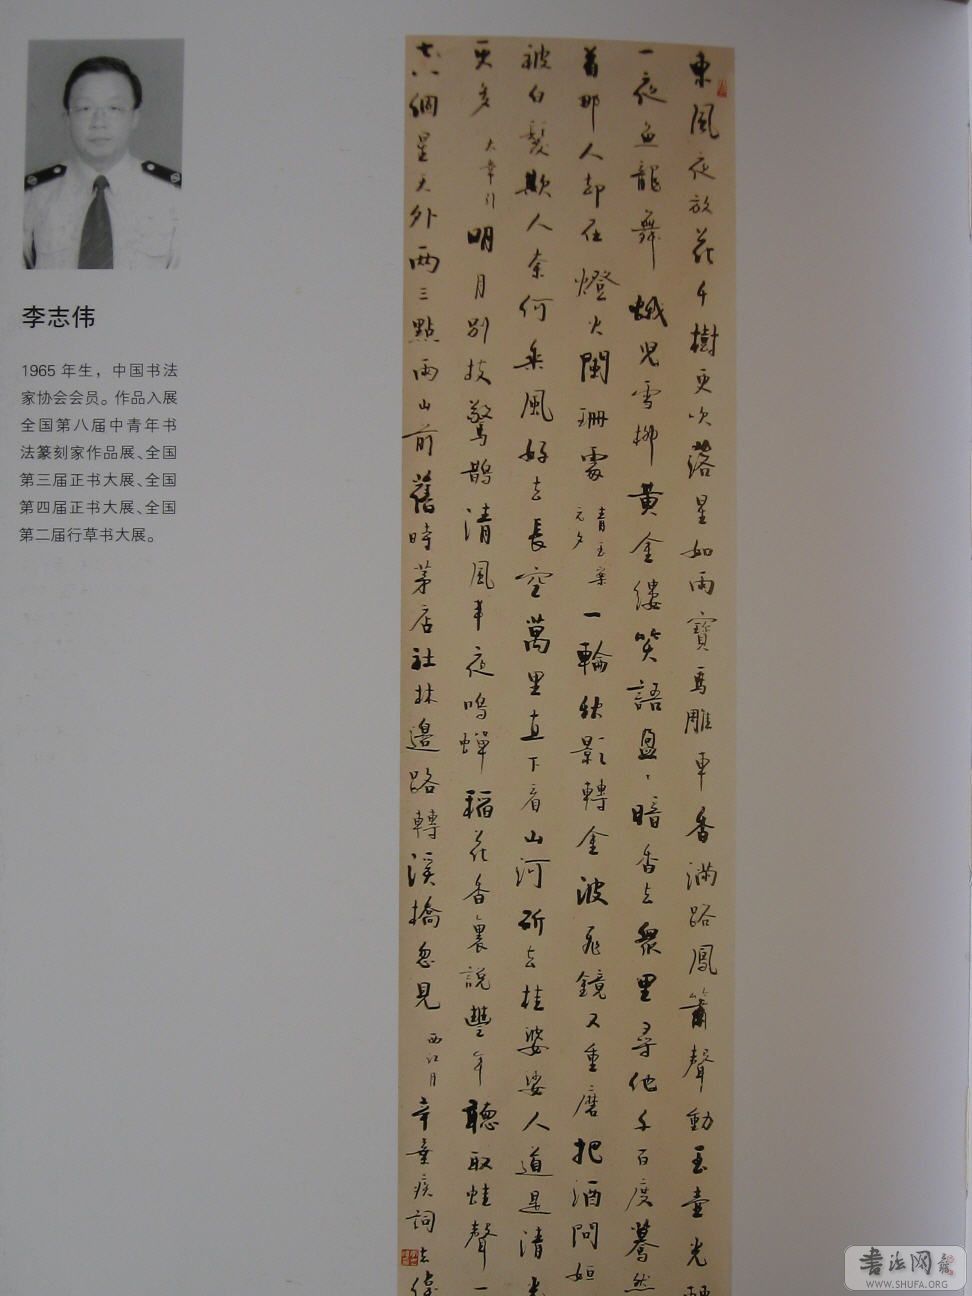 李志伟
1965 年生，中国书法
家协会会员。作品入展
全国第八届中青年书
法篆刻家作品展、全国
第三届正书大展、全国
第四届正书大展、全国
第二届行草书大展。
東風夜放花千樹更吹落星如雨寶馬雕車香滿路鳳簫聲動玉壺光
一夜魚龍舞蛾兒雪柳黃金縷笑語盈、暗香去衆里尋他千百度驀然
首那人却在燈火闌珊處
青玉案
元夕
一輪秋影轉金波飛鏡又重磨把酒問姮
被白髮欺人奈何乘風好去長空萬里直下看山河斫去桂婆娑人道是清光
更多
太常引
明月別枝驚鵲清風半夜鳴蟬稻花香裏說豐年聽取蛙聲一
七八個星天外兩三點雨山前舊時茅店社林邊路轉溪橋忽見
西江月
辛棄疾詞志偉
书法网
WWW.SHUFA.ORG